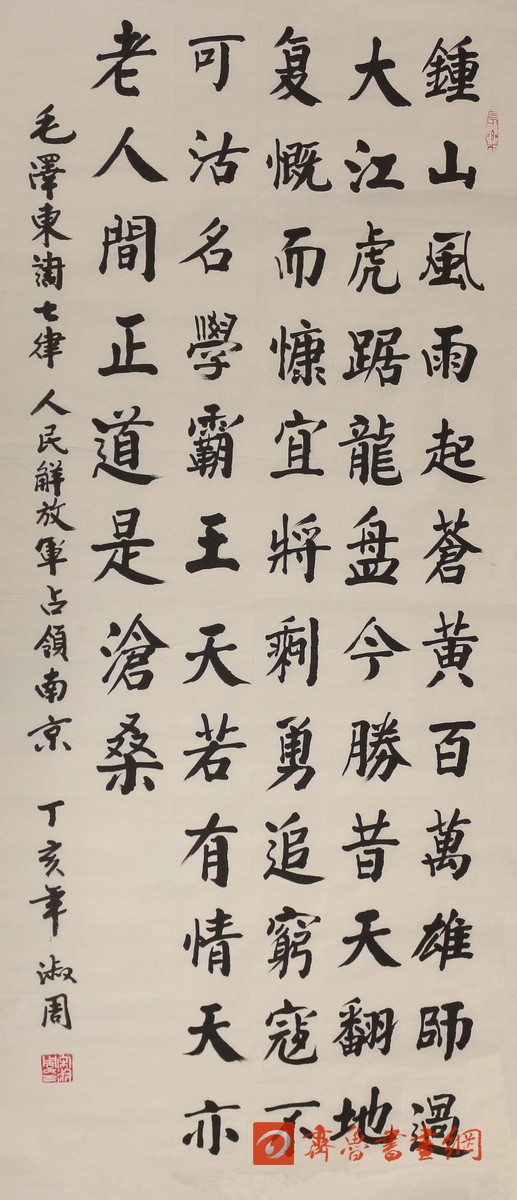 鍾山風雨起蒼黄百萬雄師過
大江虎踞龍盘今勝昔天翻地
复慨而慷宜將剩勇追窮寇不
可沽名學霸王天若有情天亦
老人間正道是滄桑
毛澤東七律 人民解放軍占領南京 丁亥年 淑周
齊魯書畫網